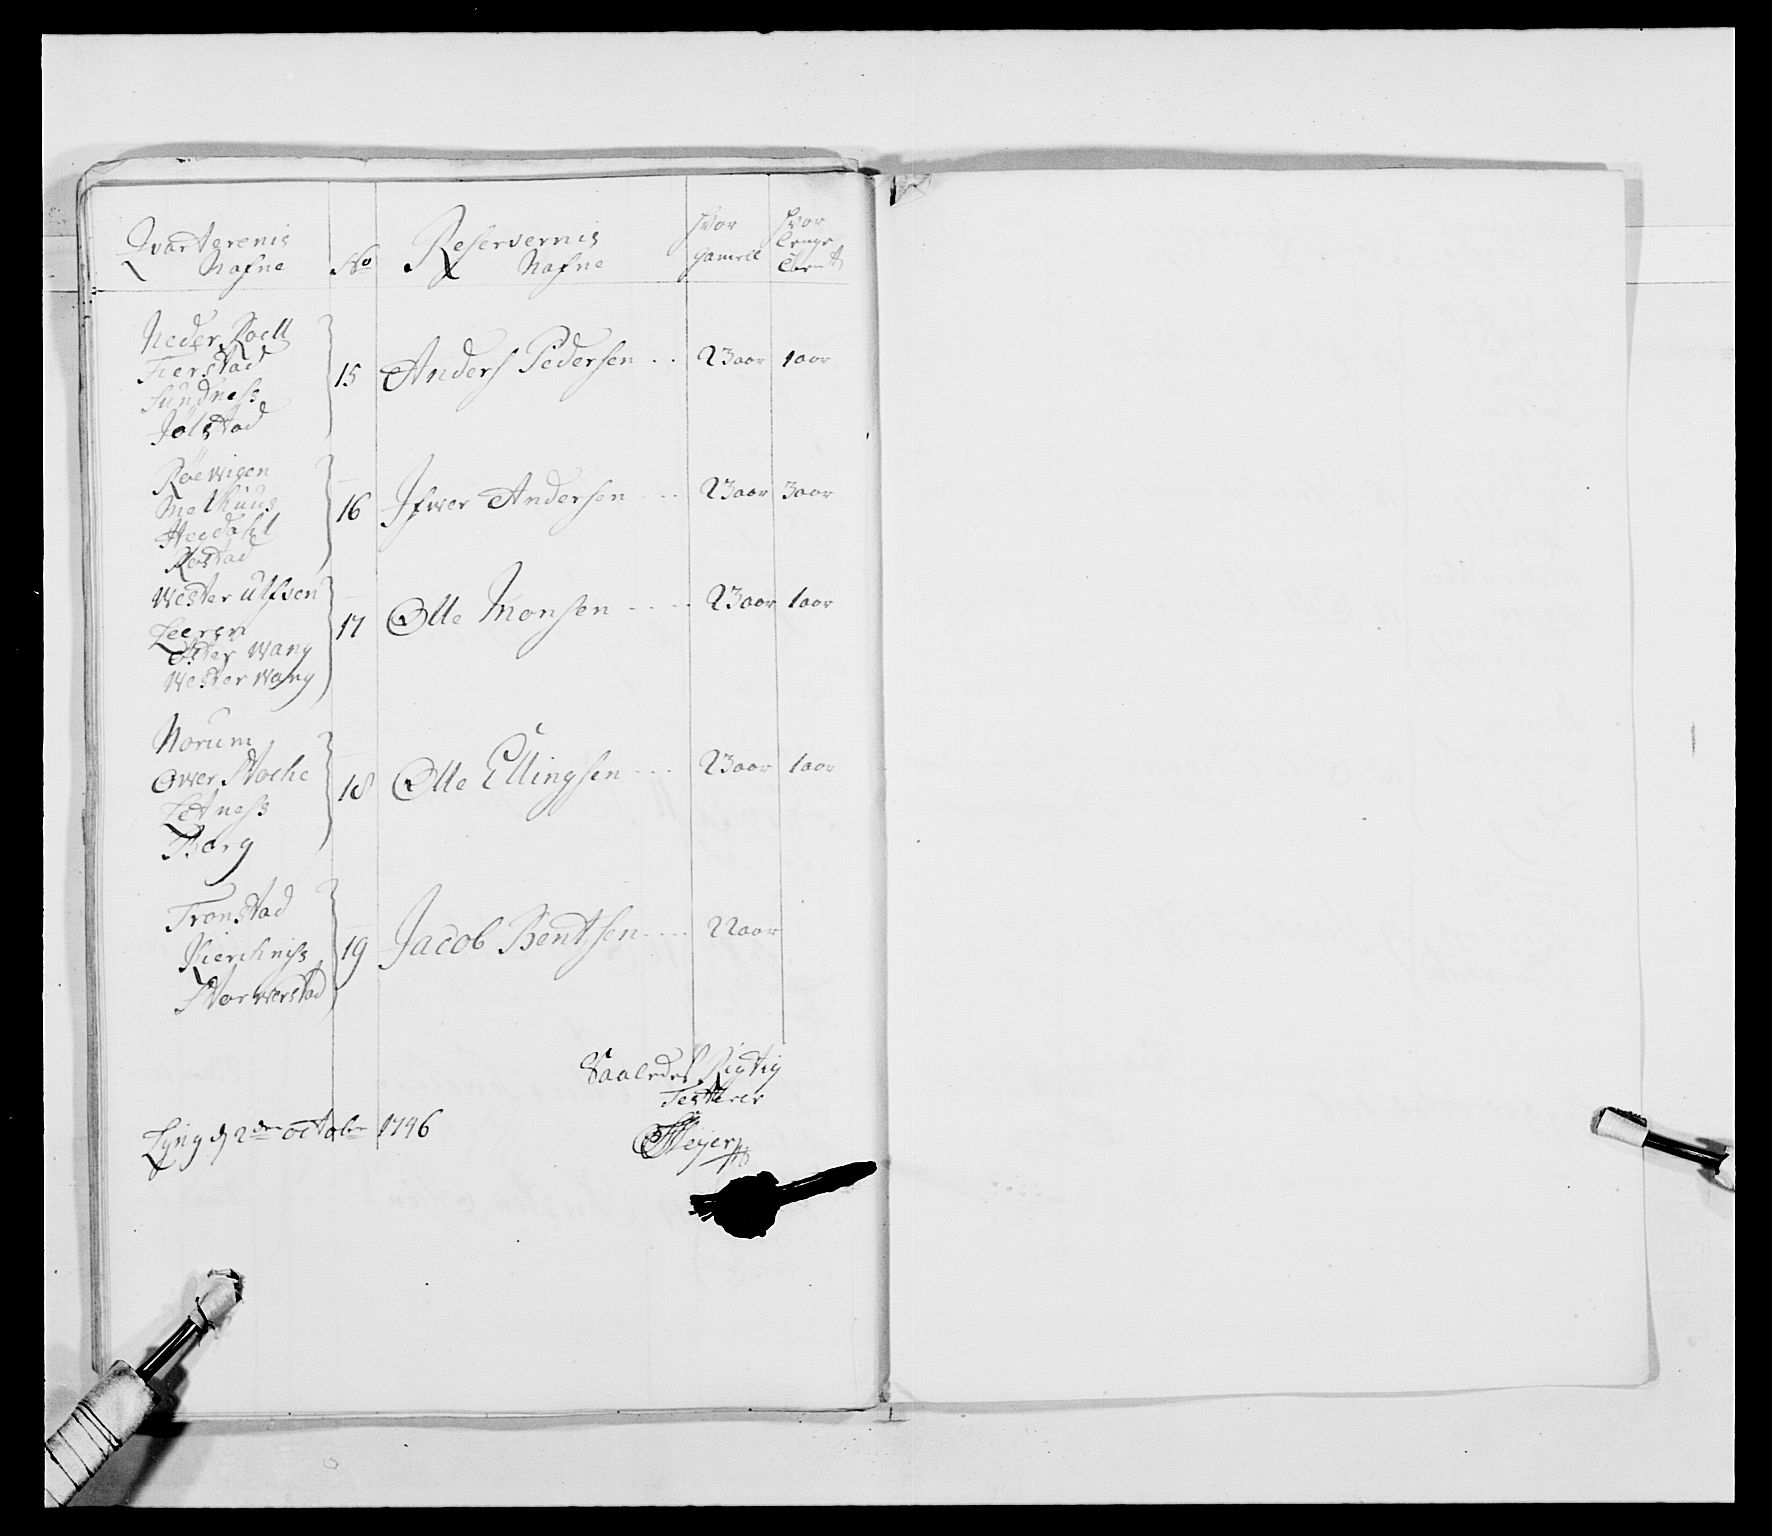 Qvarterenis Nafne No Reservernis Nafne Hvor gameel Hvor lenge tient
Neder Roell
Fierstad
Sundness
Jølstad
15 Anders Pedersen 23 aar 1 aar
Røewigen
Melhuus
Hegdahl
Røstad
16 Ifwer Andersen 23 aar 3 aar
Wester Ulfsen
Leeren
Øster Wang
Wester Wang
17 Olle Monsen 23 aar 1 aar
Norum
Ower Stoche
Letness
Borg
18 Olle Ellingsen 23 aar 1 aar
Tronstad
Kierchniss
Storwerstad
19 Jacob Bentsen 22 aar
Saaledes Rigtig
Testerer
Lyng d 2den octobr 1746
Meyer